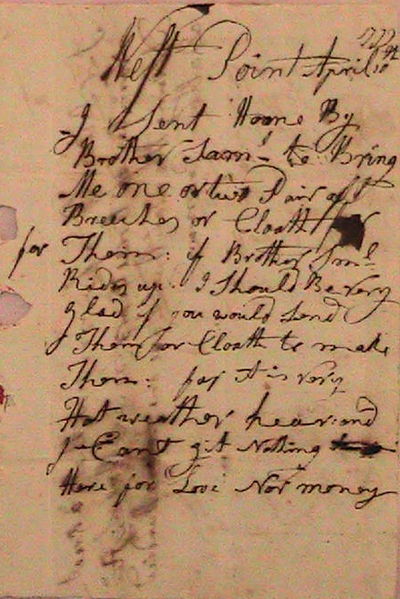 West Point April
I Sent Home By
Brother Sam.l to Bring
Me one or two Pair of
Breeches or Cloath
for Them: if Brother Sm.l
Rides up I Should Be very
glad if you would Send
Them or Cloath to make
Them: for it is very
Hot weather hear and
I Cant git Nothing
Here for Love Nor money